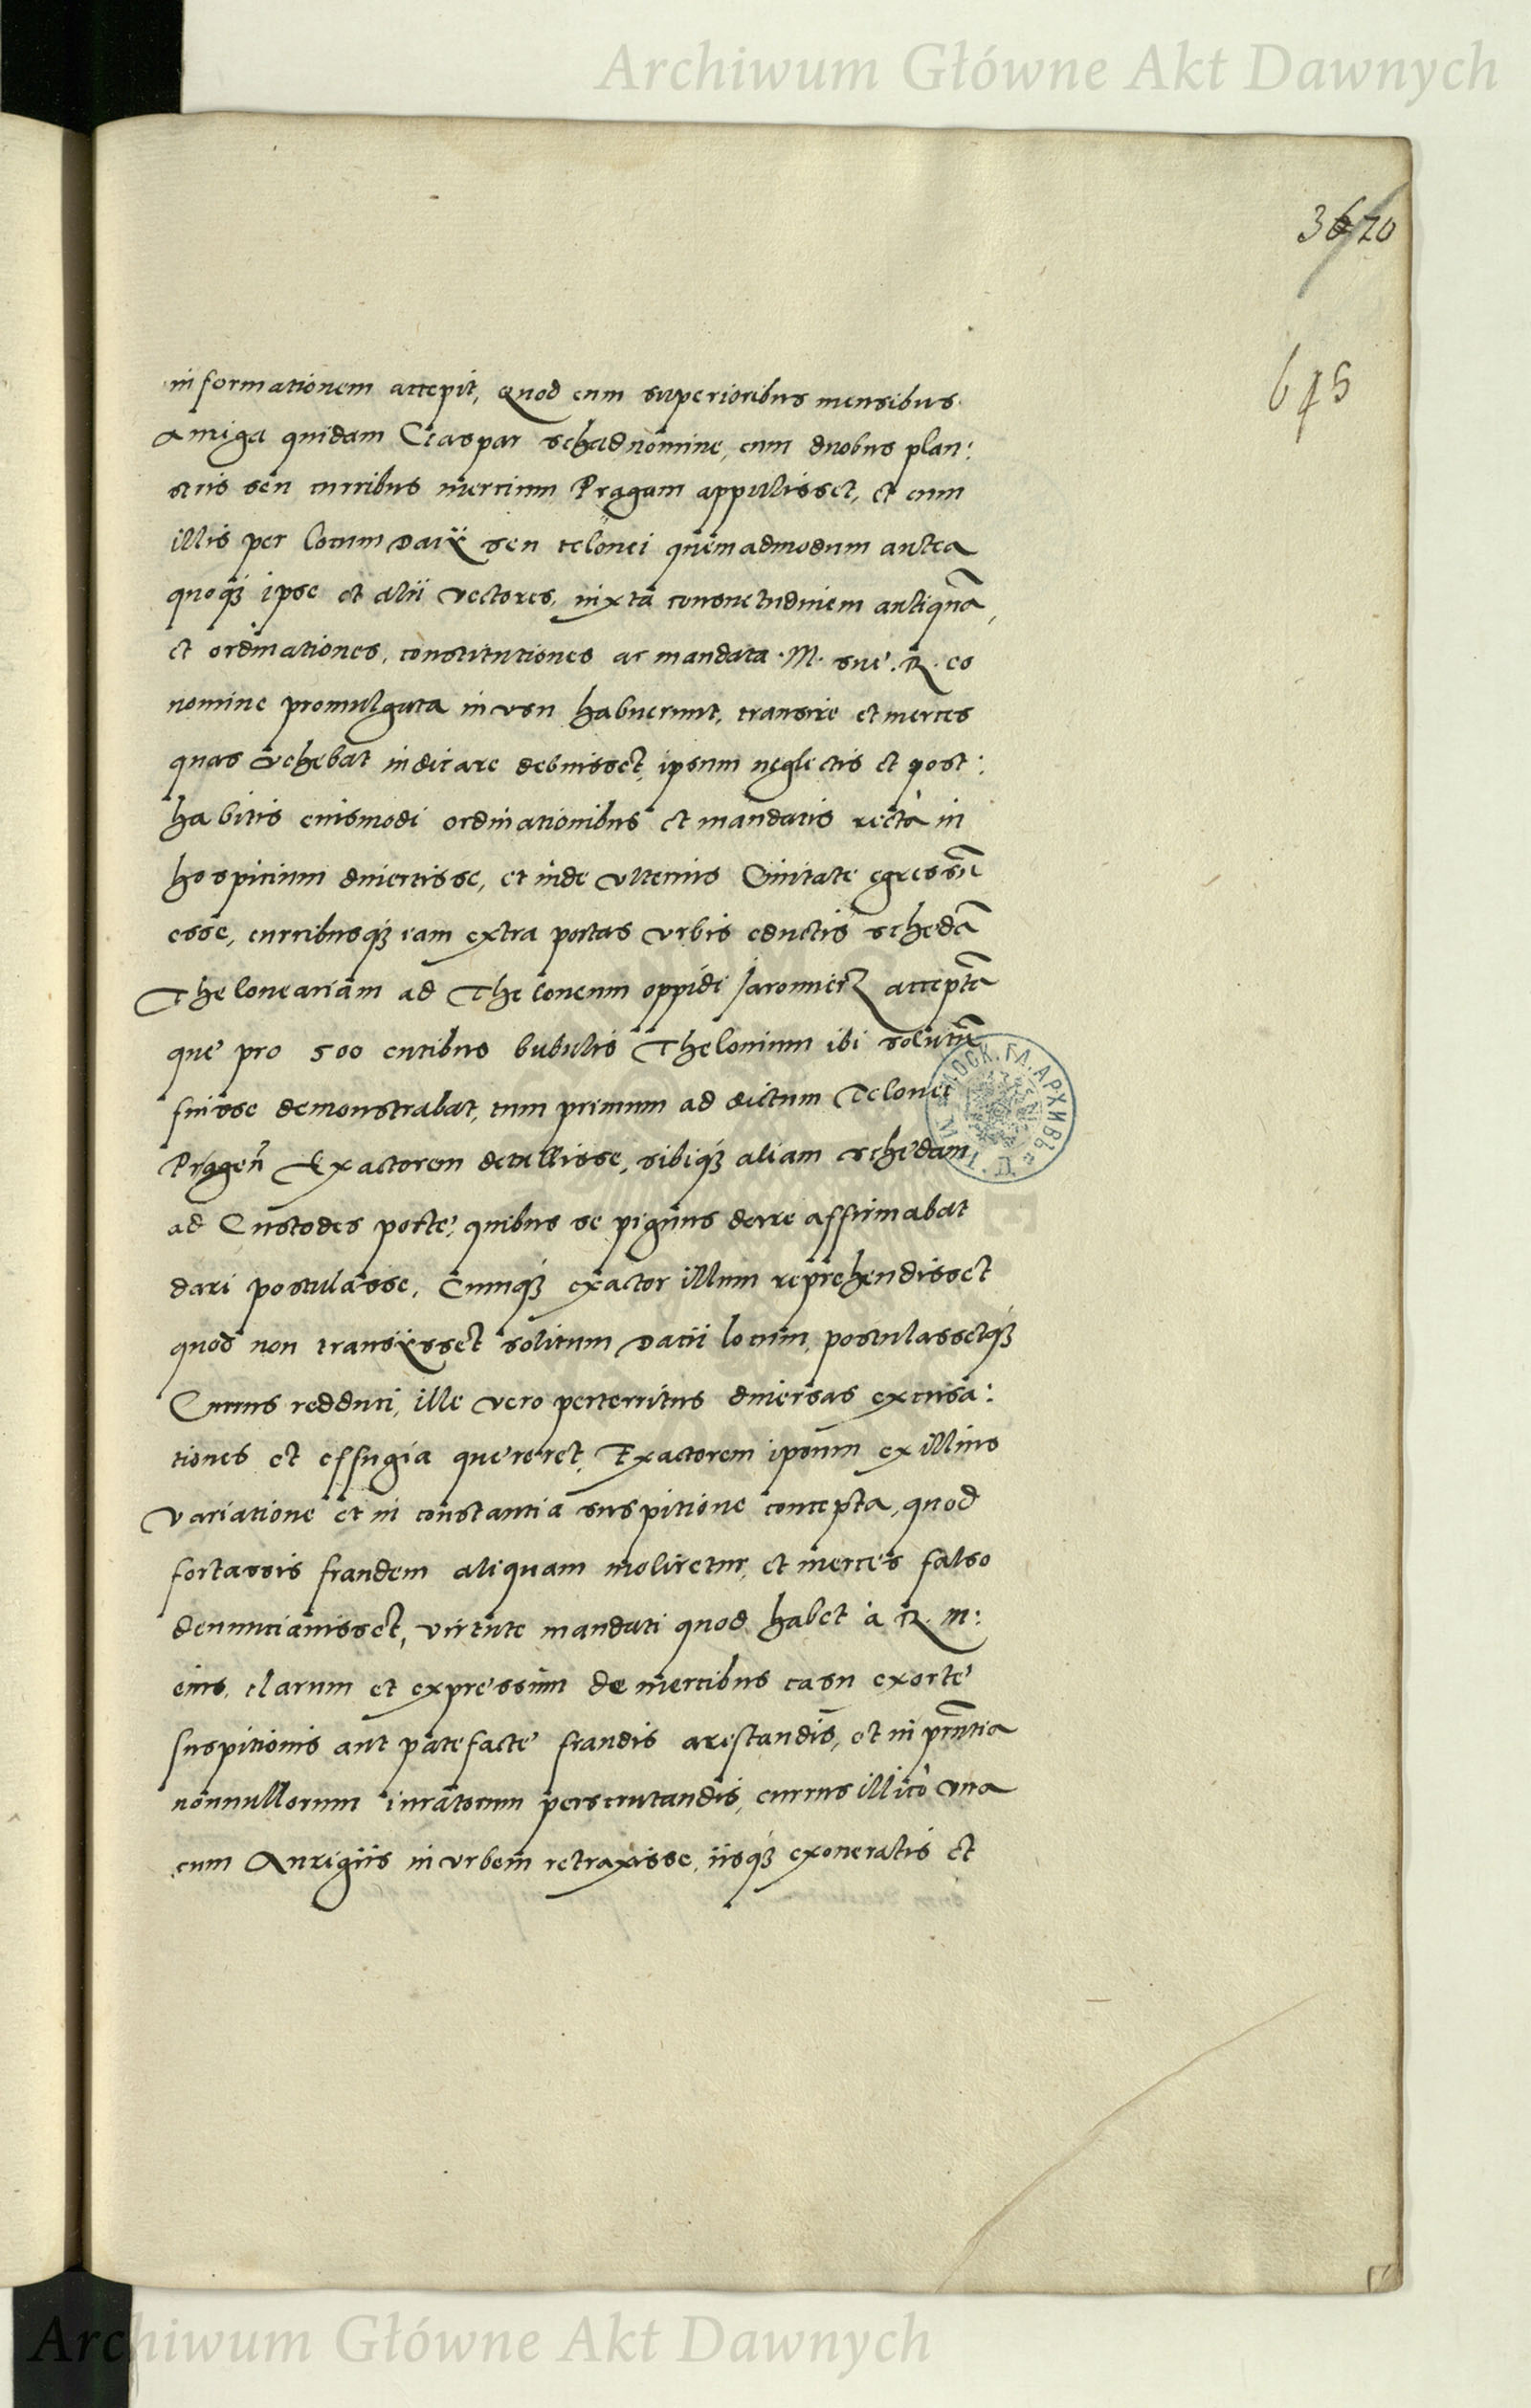 Archiwum Główne Akt Dawnych
3620
645
informationem accepit, Quod cum superioribus mensibus
auriga quidam Caspar schad nomine, cum duobus plan:
stris seu curribus mercium Pragam appulisset, et cum
illis per locum dacii seu telonei quemadmodum antea
quoq3 ipse et alii vectores, iuxta consuetudinem antiquā,
et ordinationes, constitutiones ac mandata .M. sue .R. eo
nomine promulgata in usu habuerunt, transire et merces
quas vehebat indicare debuisset, ipsum neglectis et post:
habitis eiusmodi ordinationibus et mandatis rectà in
hospitium divertisse, et inde ulterius Civitate egressū
esse, curribusq3 iam extra portas urbis eductis schedā
Theloneariam ad Theloneum oppidi Jaromierz acceptā
que pro 500 cutibus bubulis Thelonium ibi solutū
fuisse demonstrabat, tum primum ad dictum Telonei
Prageñ Exactorem detullisse, sibiq3 aliam schedam
ad Custodes porte, quibus se pignus dare affirmabat
dari postulasse, Cumq3 exactor illum reprehendisset
quod non transiisset solitum dacii locum, postulassetq3
Currus redduci, ille vero perterritus diversas excusa:
tiones et effugia quereret, Exactorem ipsum ex illius
variatione et inconstantia suspitione concepta, quod
fortassis fraudem aliquam moliretur, et merces falso
denunciavisset, virtute mandati quod habet à R. M:
eius, clarum et expressum de mercibus casu exorte
suspitionis aut patefacte fraudis arestandis, et in pñtia
nonnullorum iuratorum perscrutandis, currus illicò una
cum Aurigiis in urbem retraxisse, iisq3 exoneratis et
Archiwum Główne Akt Dawnych